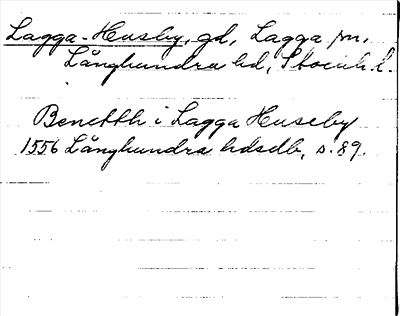 Lagga-Husby, gd, Lagga sn,
Långhundra hd, Stockh. l.
Benckth i Lagga Huseby
1556 Långhundra hdsdb, s. 89.